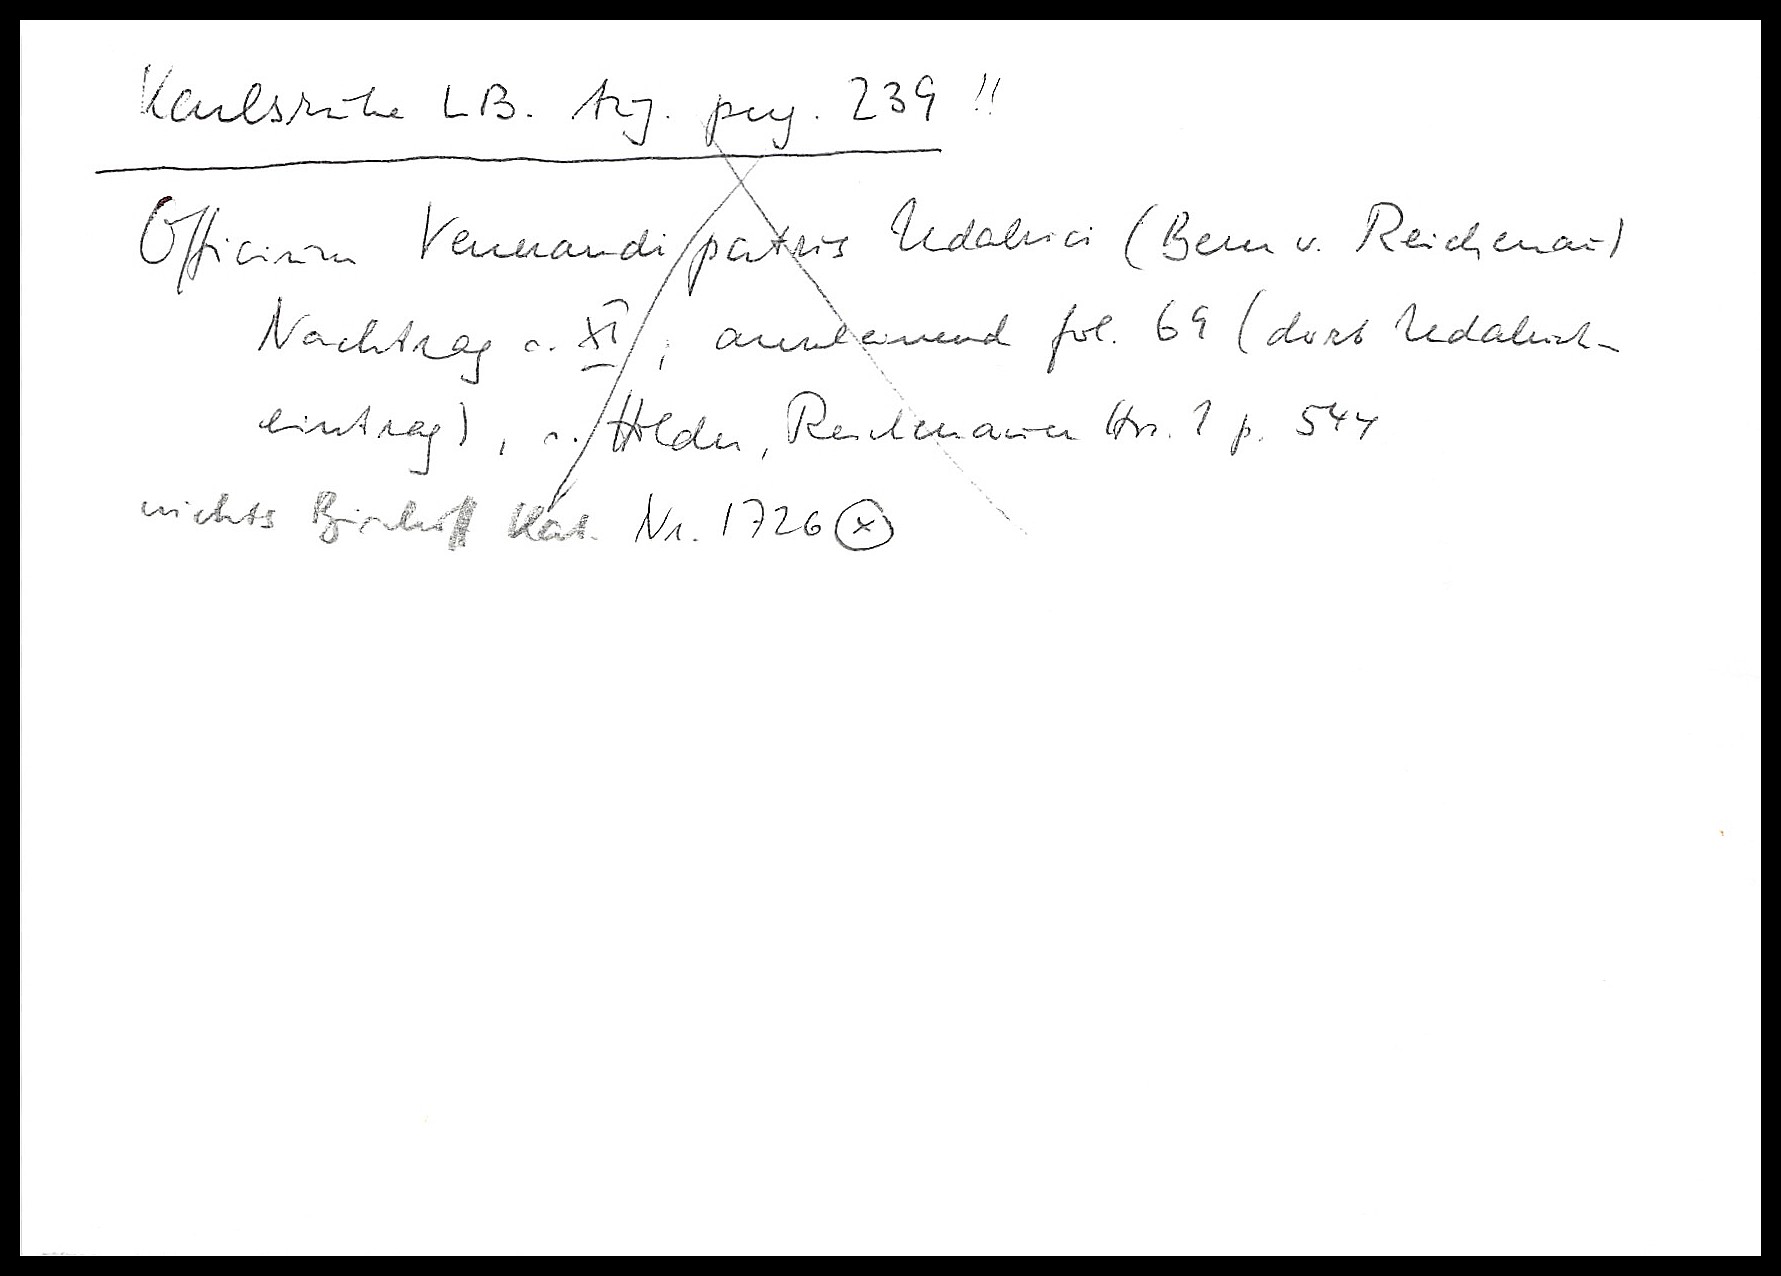 Karlsruhe LB. Aug. perg. 239 !!
Officium Venerandi patris Udalrici (Bern v. Reichenau)
Nachtrag s. XI ; anscheinend fol. 69 (dort Udalrich-
eintrag), s. Holder, Reichenauer Hss. 1 p. 544
nichts Bischoff Kat. Nr. 1726 (x)